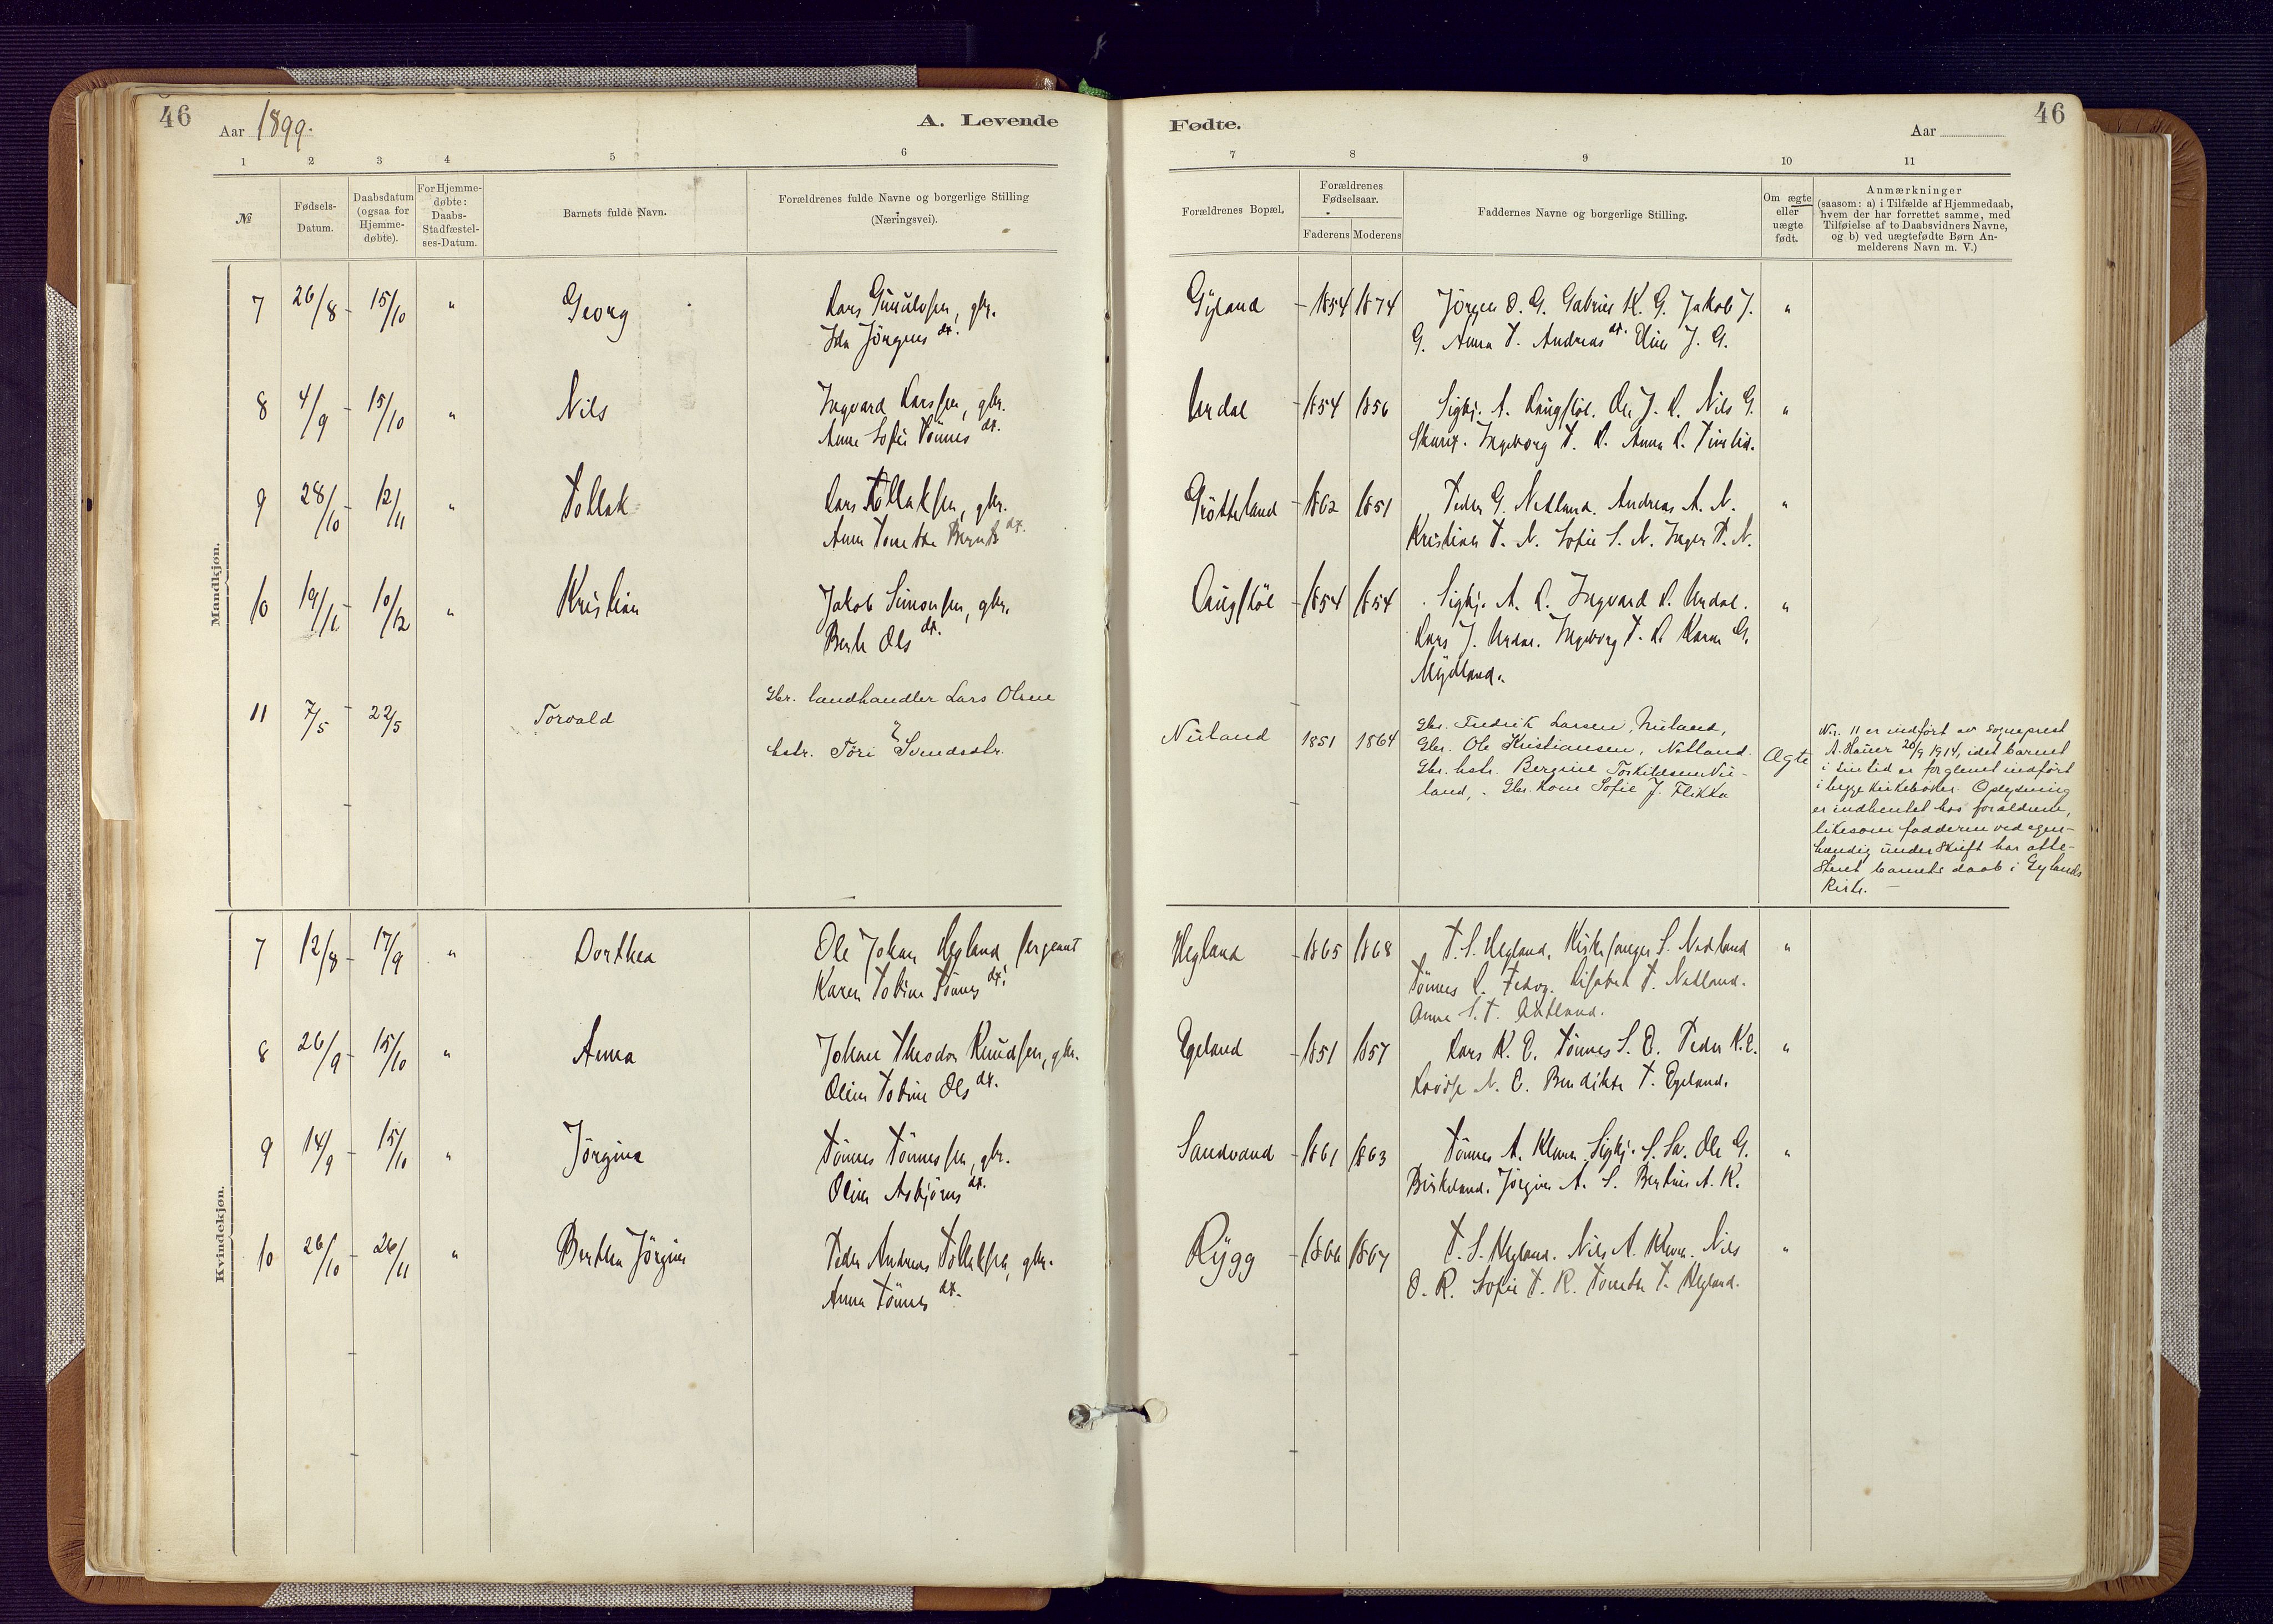 46
Aar 1899.
A. Levende
1 2 3 4 5 6
№
Fødsels-
Datum.
Daabsdatum
(ogsaa for
Hjemme-
døbte).
For Hjemme-
døbte:
Daabs-
Stadfæstel-
ses-Datum.
Barnets fulde Navn.
Forældrenes fulde Navne og borgerlige Stilling
(Næringsvei).
Mandkjøn.
7 26/8 - 15/10 " Georg Lars Gunulvsen, gbr.
Ida Jörgens dt.
8 4/9 - 15/10 " Nils Ingvard Larssen, gbr.
Anne Sofie Tönnes dt.
9 28/10 - 12/11 " Tollak Lars Tollaksen, gbr.
Anne Tonette Bernts dt.
10 19/11 - 10/12 " Kristian Jakob Simonsen, gbr.
Berte Ols dt.
11 7/5 - 22/5 Torvald Gbr. landhandler Lars Olsen
hstr. Töri Svendsdtr.
Kvindekjøn.
7 12/8 - 17/9 " Dorthea Ole Johan Hegland sergeant
Karen Tobine Tönnes dt.
8 26/9 - 15/10 " Anna Johan Theodor Knudsen, gbr.
Oline Tobine Ols dt.
9 14/9 - 15/10 " Jörgine Tönnes Tönnessen, gbr.
Oline Asbjörns dt.
10 26/10 - 26/11 " Berthea Jörgine Peder Andreas Tollaksen, gbr.
Anna Tönnes dt.
Fødte.
Aar
46
7 8 9 10 11
Forældrenes Bopæl.
Forældrenes
Fødselsaar.
Faderens Moderens
Faddernes Navne og borgerlige Stilling.
Om ægte
eller
uægte
født.
Anmærkninger
(saasom: a) i Tilfælde af Hjemmedaab,
hvem der har forrettet samme, med
Tilføielse af to Daabsvidners Navne,
og b) ved uægtefødte Børn An-
melderens Navn m. V.)
Gyland - 1854 1874 Jörgen O. G. Gabriel K. G. Jakob J. "
G. Anna T. Andreas dt. Eline J. G.
Urdal - 1854 1856 Sigbj. A. Laugstöl. Ole J. L. Nils G. "
Ingeborg T. L. Anna L.
Grötteland - 1862 1851 Peder G. Netland. Andreas A. N. "
Kristian T. N. Sofie S. N. Inger T. N.
Laugstöl - 1854 1854 Sigbj. A. L. Ingvard L. Urdal. "
Lars J. Urdal. Ingeborg T. L. Karen G.
Mydland.
Nuland 1851 1864 Gbr. Fredrik Larsen, Nuland,
Gbr. Ole Kristiansen, Netland.
Gbr. hstr. Bergine Torkildsen Nu-
land, Gbr. kone Sofie J. Flikka
Ægte
Nr. 11 er indfört av sogneprest
A. Hauer 26/9 1914, idet barnet
i sin tid er forglemt indfört
i begge kirkeböker. Oplysning
er indhentet hos forældrene,
likesom fadderne ved egen-
hændig underskrift har atte-
steret barnets daab i Gylands
kirke.
Hegland - 1865 1868 T. S. Hegland, Kirkesanger S. Nedland "
Tönnes L. Fedog. Lisabet T. Nedland.
Anne S. T.
Egeland - 1851 1857 Lars K. E. Tönnes S. E. Peder K. E. "
Lovise N. E. Bendikte T. Egeland.
Sandvand - 1861 1863 Tönnes A. Kleven. Sigbj. S. Sa. Ole G. "
Birkeland. Jörgine A. S. Bertine A. K.
Rygg - 1866 1867 T. S. Hegland. Nils A. Kleven. Nils "
O. R. Sofie T. R. Tonette T. Hegland.